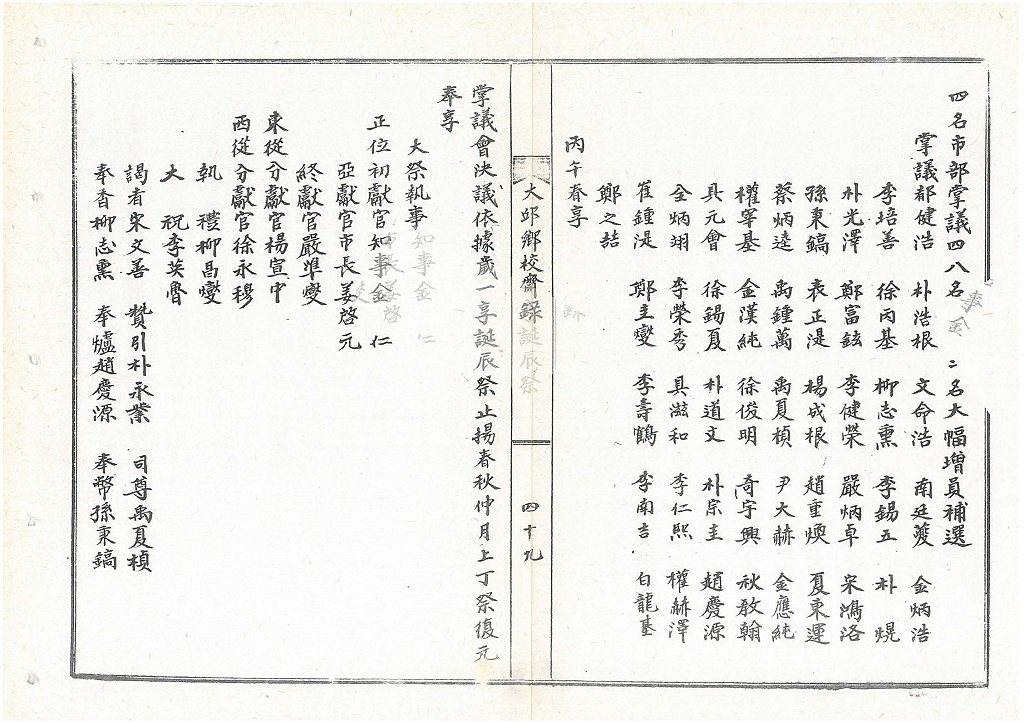 四名市部掌議四八名 二名大幅增員補選
掌議都健浩 朴浩根 文命浩 南廷夔 金炳浩
李培善 徐丙基 柳志熏 李錫五 朴 熀
朴光澤 鄭富鉉 李健榮 嚴炳卓 宋鴻洛
孫東鎬 袁正湜 楊成根 趙重煥 夏東運
蔡炳逵 禹鍾萬 禹夏楨 尹大赫 金應純
權寧基 金漢純 徐俊明 奇宇興 秋敎翰
具元會 徐錫夏 朴道文 朴宗圭 趙慶源
全炳翊 李榮秀 具滋和 李仁熙 權赫澤
崔鍾湜 鄭圭燮 李壽鶴 李南吉 白龍基
鄭之喆
丙午春享
大邱鄉校齋錄 誕辰祭 四十九
掌議會決議依據歲一享誕辰祭止揚春秋仲月上丁祭復元
奉享
大祭執事
正位初獻官知事金 仁
亞獻官市長姜啓元
終獻官嚴準燮
東從分獻官楊宣中
西從分獻官徐永穆
執 禮柳昌燮
大 祝李英魯
謁者宋文善 贊引朴永業 司尊禹夏楨
奉香柳志熏 奉爐趙慶源 奉幣孫秉鎬